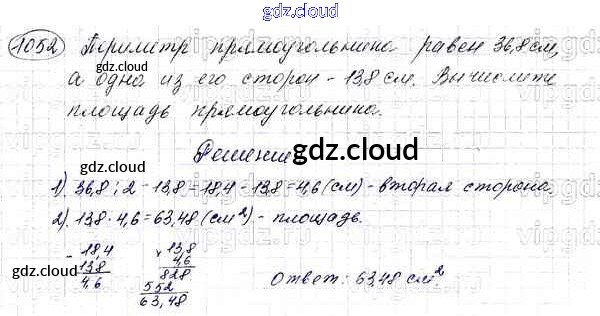 gdz.cloud
1052 Периметр прямоугольника равен 36,8 см,
gdz.cloud
а одна из его сторон - 13,8 см. Вычислите
площадь прямоугольника.
Решение
gdz.cloud
gdz.cloud
1) 36,8 : 2 - 13,8 = 18,4 - 13,8 = 4,6 (см) - вторая сторона.
2) 13,8 · 4,6 = 63,48 (см²) - площадь.
- 18,4 × 13,8
13,8 4,6
4,6 828
552
63,48
gdz.cloud
gdz.cloud
Ответ: 63,48 см².